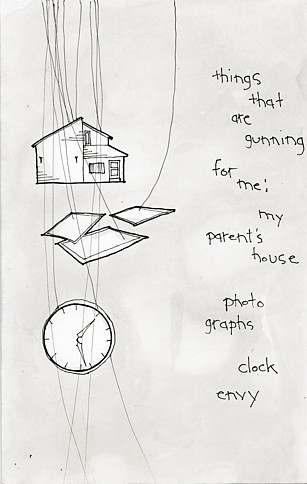 things
that
are
gunning
for
me:
my
parent's
house
photo
graphs
clock
envy